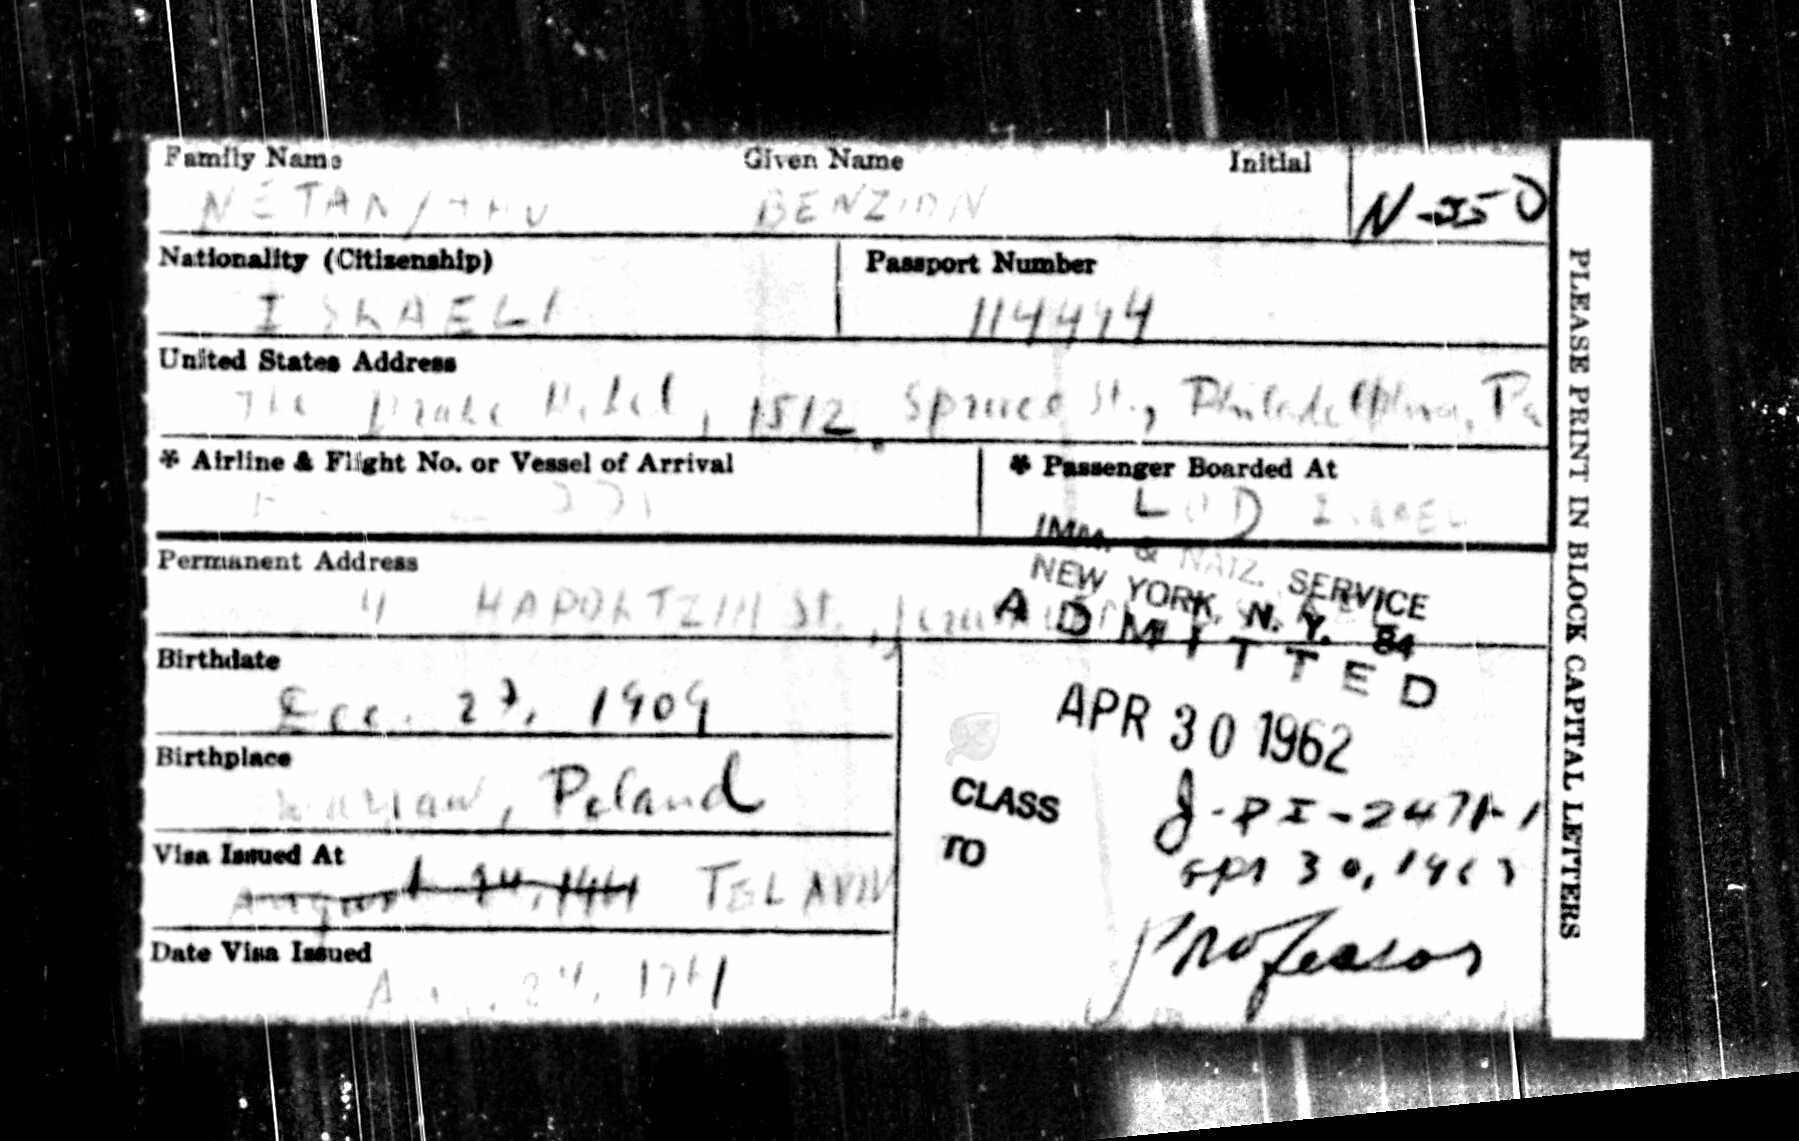 Family Name Given Name Initial
NETANYAHU BENZION N-550
Nationality (Citizenship) Passport Number
ISRAELI 114494
United States Address
The Drake Hotel, 1512 Spruce St., Philadelphia, Pa
* Airline & Flight No. or Vessel of Arrival * Passenger Boarded At
LOD ISRAEL
IMM. & NATZ. SERVICE
NEW YORK, N. Y. 84
ADMITTED
Permanent Address
4 HAPORTZIM St., Jerusalem
Birthdate
Dec. 27, 1909
APR 30 1962
Birthplace
Warsaw, Poland
CLASS J-PI-2471-1
TO Apr 30, 1963
Visa Issued At
August 24, 1961 TEL AVIV
Professor
Date Visa Issued
24, 1961
PLEASE PRINT IN BLOCK CAPITAL LETTERS